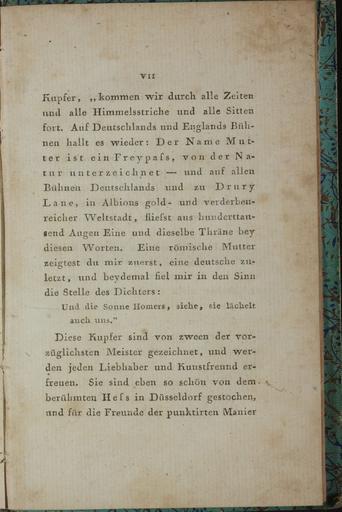 VII
Kupfer, „kommen wir durch alle Zeiten
und alle Himmelsstriche und alle Sitten
fort. Auf Deutschlands und Englands Büh-
nen hallt es wieder: Der Name Mut-
ter ist ein Freypaſs, von der Na-
tur unterzeichnet — und auf allen
Bühnen Deutschlands und zu Drury
Lane, in Albions gold- und verderben-
reicher Weltstadt, flieſst aus hunderttau-
send Augen Eine und dieselbe Thräne bey
diesen Worten. Eine römische Mutter
zeigtest du mir zuerst, eine deutsche zu-
letzt, und beydemal fiel mir in den Sinn
die Stelle des Dichters:
Und die Sonne Homers, siehe, sie lächelt
auch uns.“
Diese Kupfer sind von zween der vor-
züglichsten Meister gezeichnet, und wer-
den jeden Liebhaber und Kunstfreund er-
freuen. Sie sind eben so schön von dem
berühmten Heſs in Düsseldorf gestochen,
und für die Freunde der punktirten Manier